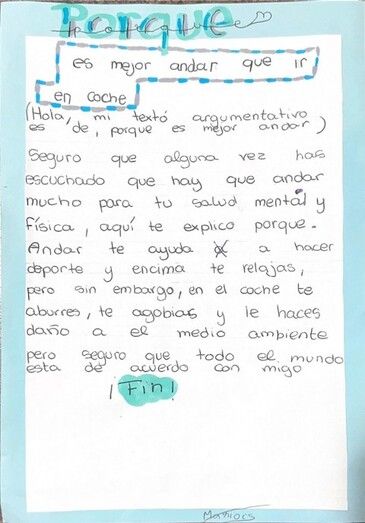 Porque
Porque
es mejor andar que ir
en coche
(Hola, mi textó argumentativo
es de, porque es mejor andar)
Seguro que alguna vez has
escuchado que hay que andar
mucho para tu salud mental y
física, aquí te explico porque.
Andar te ayuda a hacer
deporte y encima te relajas,
pero sin embargo, en el coche te
aburres, te agobias y le haces
daño a el medio ambiente
pero seguro que todo el mundo
esta de acuerdo con migo
¡Fin!